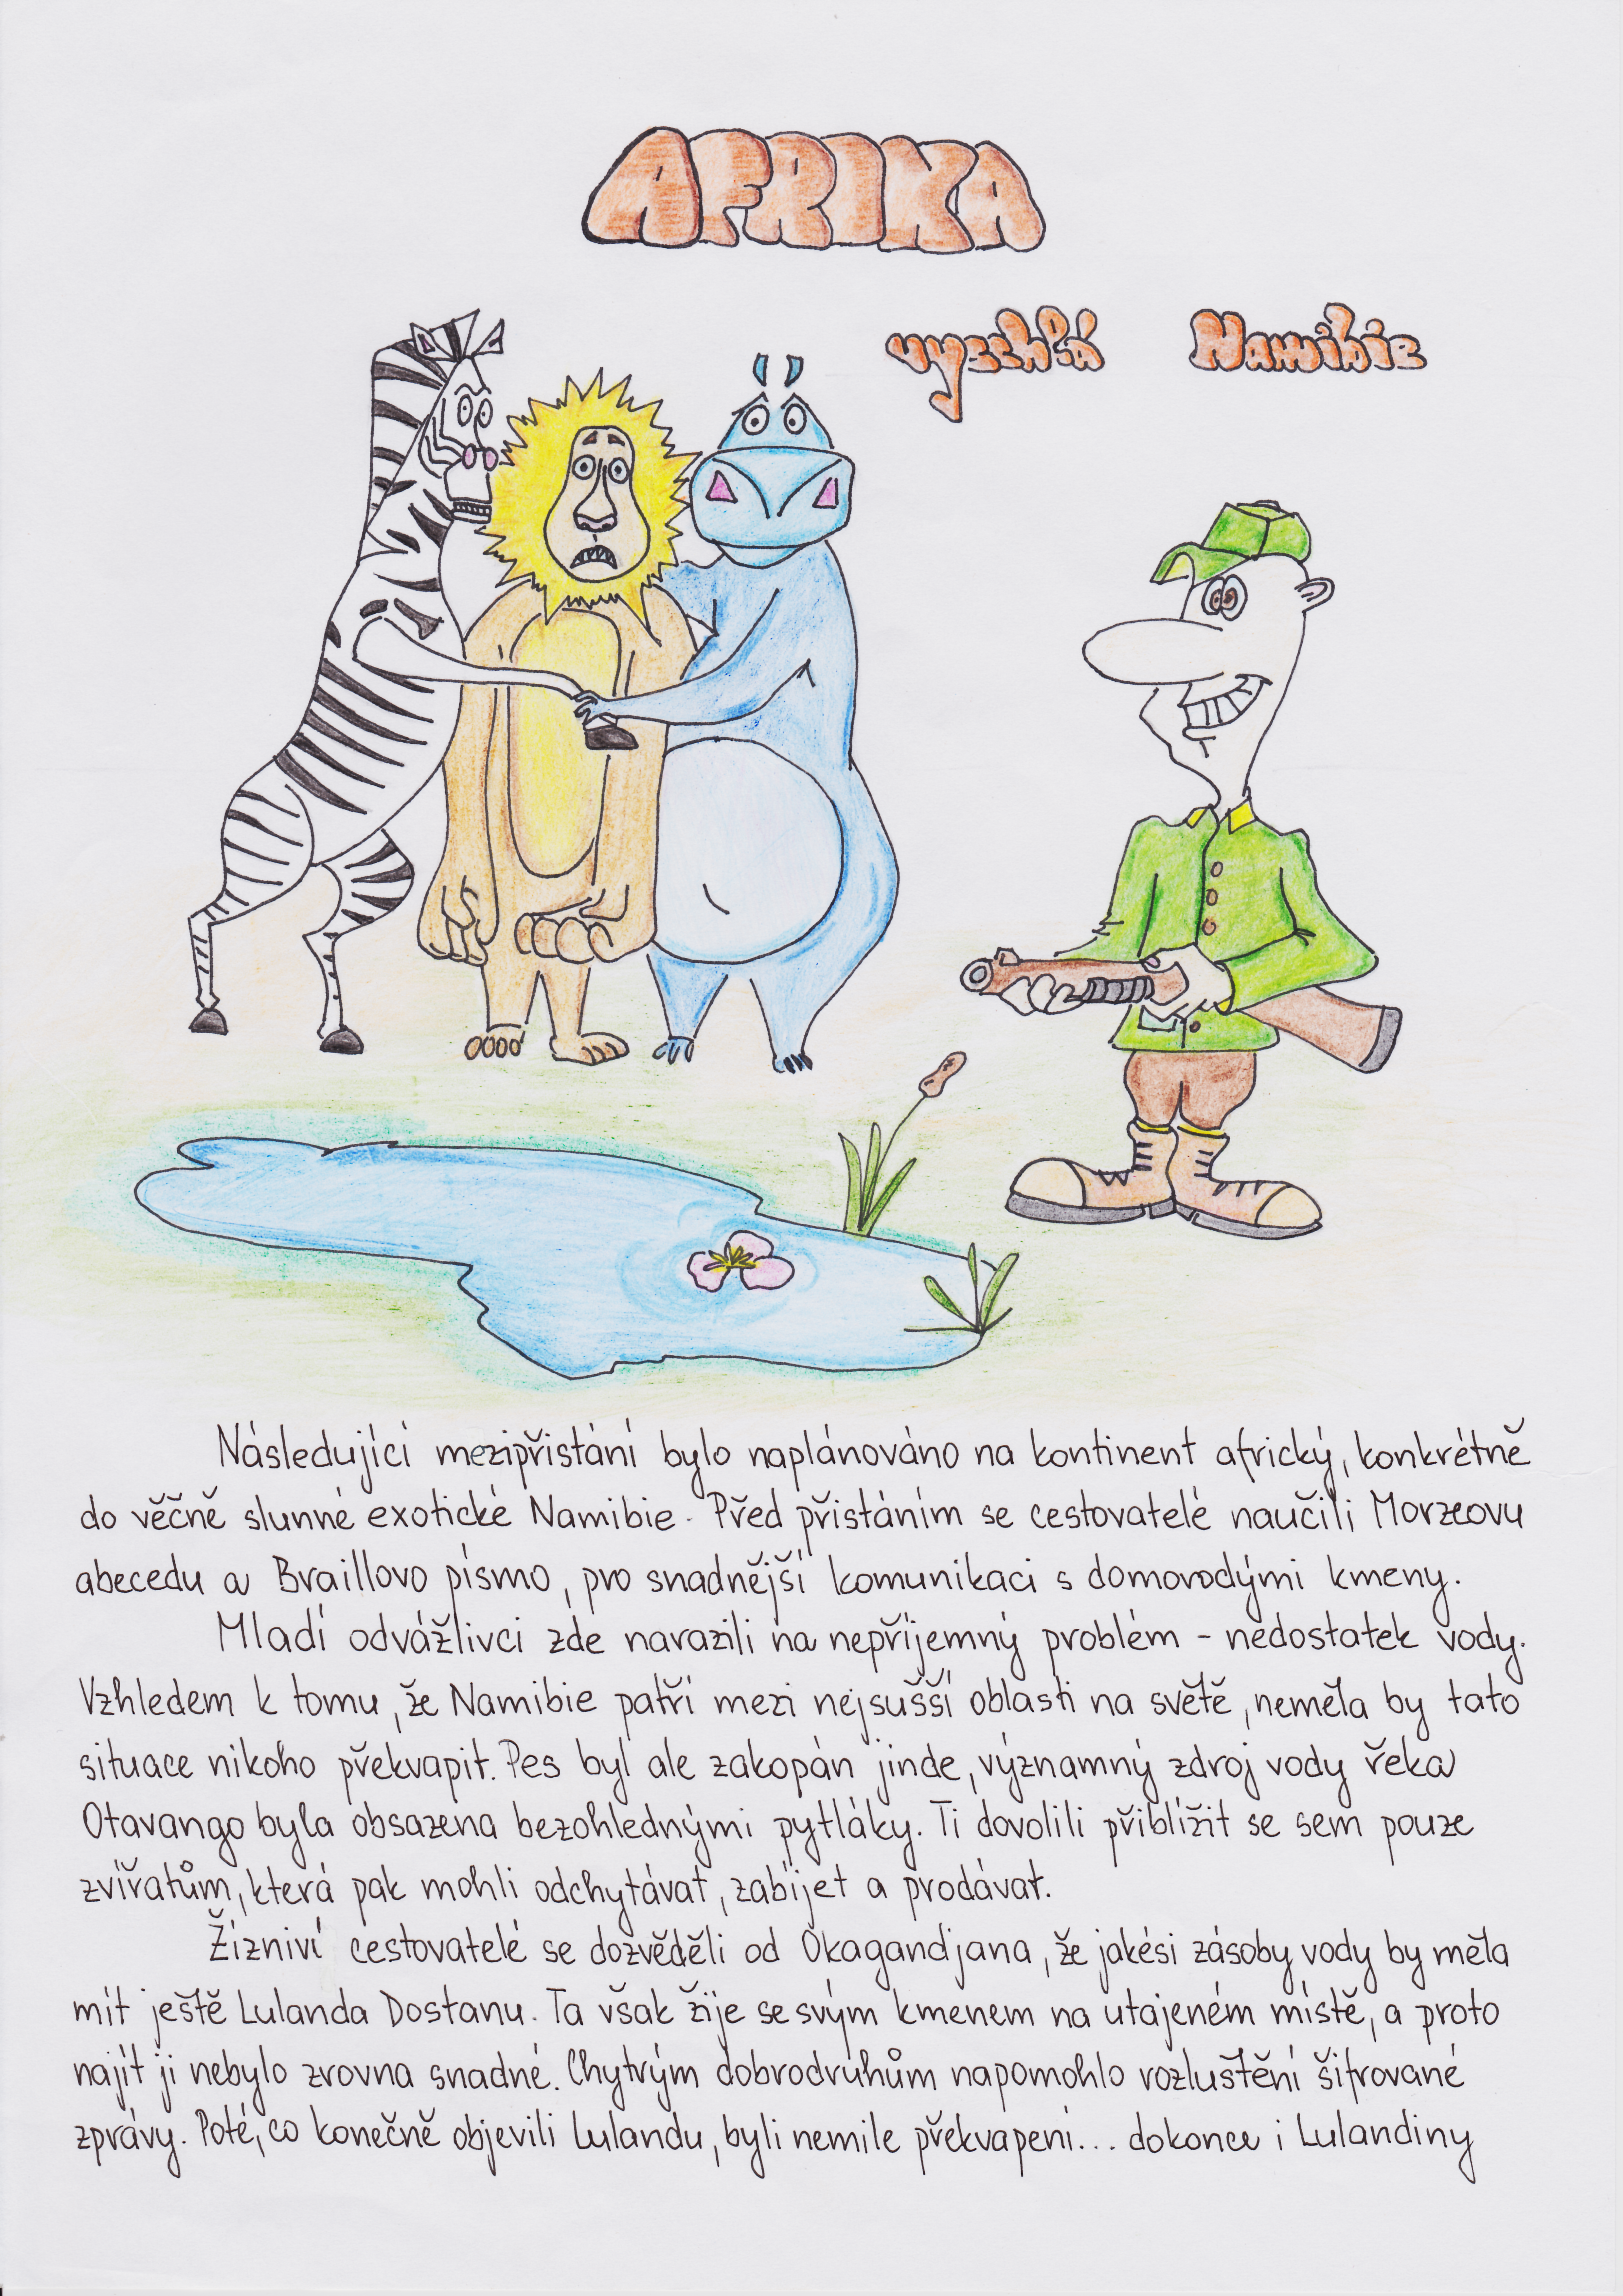 AFRIKA
vyschlá Namibie
Následující mezipřistání bylo naplánováno na kontinent africký, konkrétně
do věčně slunné exotické Namibie. Před přistáním se cestovatelé naučili Morzeovu
abecedu a Braillovo písmo, pro snadnější komunikaci s domorodými kmeny.
Mladí odvážlivci zde narazili na nepříjemný problém - nedostatek vody.
Vzhledem k tomu, že Namibie patří mezi nejsušší oblasti na světě, neměla by tato
situace nikoho překvapit. Pes byl ale zakopán jinde, významný zdroj vody řeka
Otavango byla obsazena bezohlednými pytláky. Ti dovolili přiblížit se sem pouze
zvířatům, která pak mohli odchytávat, zabíjet a prodávat.
Žízniví cestovatelé se dozvěděli od Okagandjana, že jakési zásoby vody by měla
mít ještě Lulanda Dostanu. Ta však žije se svým kmenem na utajeném místě, a proto
najít ji nebylo zrovna snadné. Chytrým dobrodruhům napomohlo rozluštění šifrované
zprávy. Poté, co konečně objevili Lulandu, byli nemile překvapeni... dokonce i Lulandiny